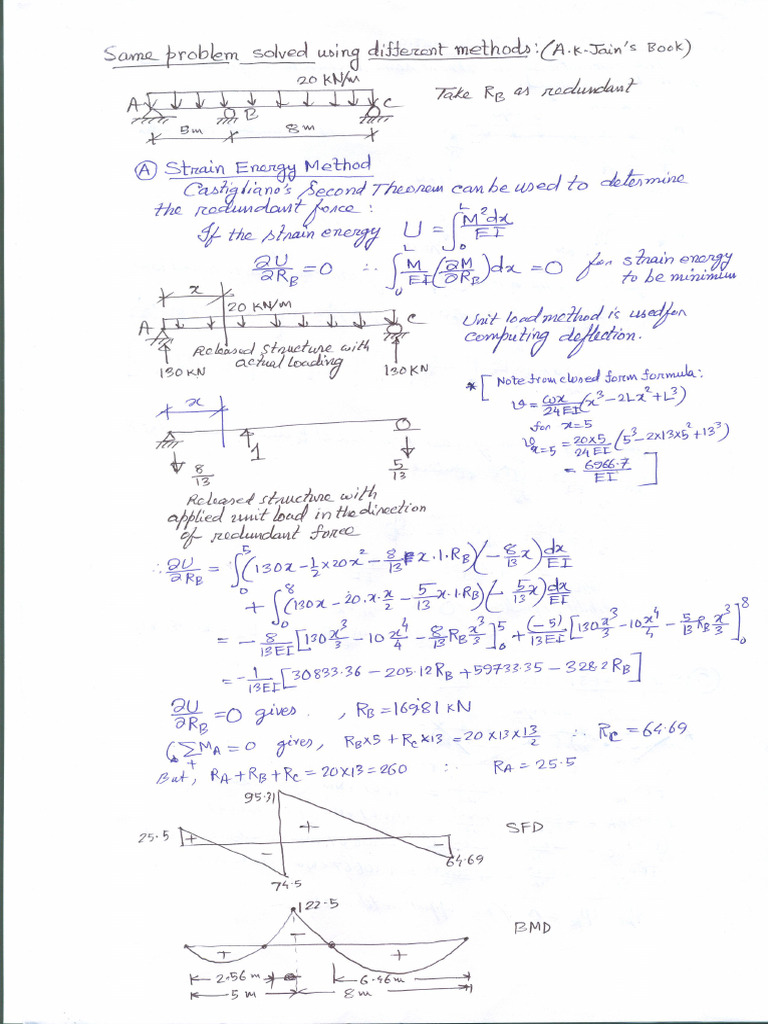 Same problem solved using different methods: (A.K-Jain's Book)
20 KN/m
A B C
5m 8m
Take RB as redundant
(A) Strain Energy Method
Castigliano's Second Theorem can be used to determine
the redundant force:
If the strain energy U = ∫₀ᴸ M²dx/EI
∂U/∂RB = 0 ∴ ∫₀ᴸ M/EI (∂M/∂RB) dx = 0 for strain energy
to be minimum
x
20 KN/m
A C
Released structure with
actual loading
130 KN 130 KN
Unit load method is used for
computing deflection.
* [ Note from closed form formula:
v = ωx/24EI (x³ - 2Lx² + L³)
for x=5
v x=5 = 20×5/24EI (5³ - 2×13×5² + 13³)
= 6966.7/EI ]
x
1
8/13 5/13
Released structure with
applied unit load in the direction
of redundant force
∴ ∂U/∂RB = ∫₀⁵ (130x - 1/2 × 20x² - 8/13 x.1.RB)(-8/13 x) dx/EI
+ ∫₀⁸ (130x - 20.x.x/2 - 5/13 x.1.RB)(-5/13 x) dx/EI
= -8/13EI [130 x³/3 - 10 x⁴/4 - 8/13 RB x³/3]₀⁵ + (-5)/13EI [130 x³/3 - 10 x⁴/4 - 5/13 RB x³/3]₀⁸
= -1/13EI [30833.36 - 205.12RB + 59733.35 - 328.2RB]
∂U/∂RB = 0 gives , RB = 169.81 KN
(∑MA = 0 gives, RB×5 + RC×13 = 20×13×13/2 ∴ RC = 64.69
+
But, RA + RB + RC = 20×13 = 260 ∴ RA = 25.5
95.31
25.5 + - + -
64.69
74.5
SFD
122.5
+ - +
BMD
2.56m 6.46m
5 m 8m